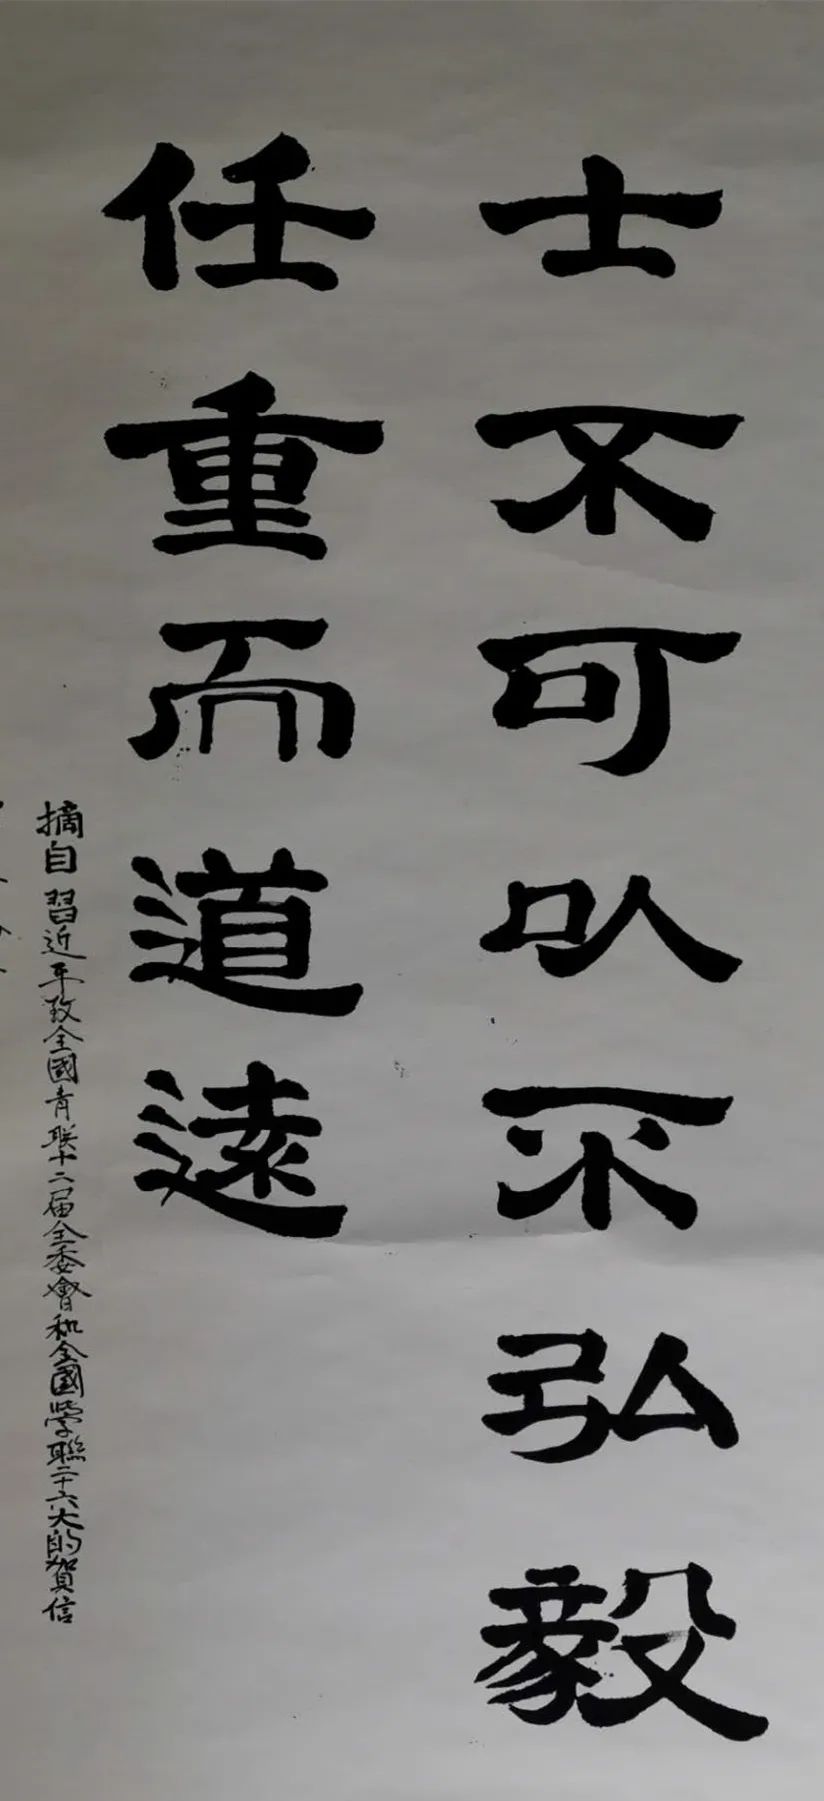 士不可以不弘毅
任重而道遠
摘自習近平致全國青联十二届全委會和全國學聯二十六大的賀信